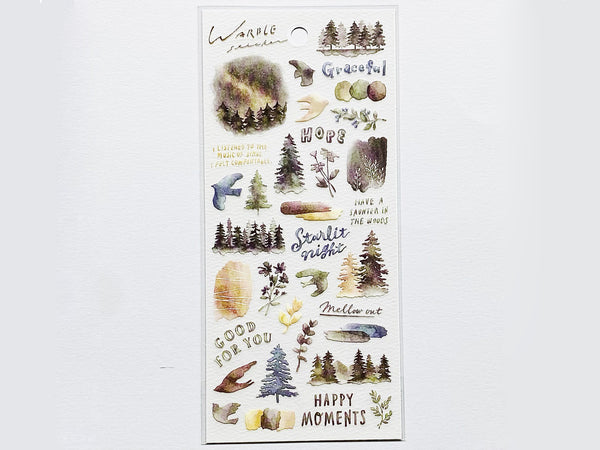 WARBLE
Graceful
HOPE
I LISTENED TO THE
MUSIC OF BIRDS
I FELT COMFORTABLE.
HAVE A
SAUNTER IN
THE WOODS
Starlit
night
Mellow out
GOOD
FOR YOU
HAPPY
MOMENTS